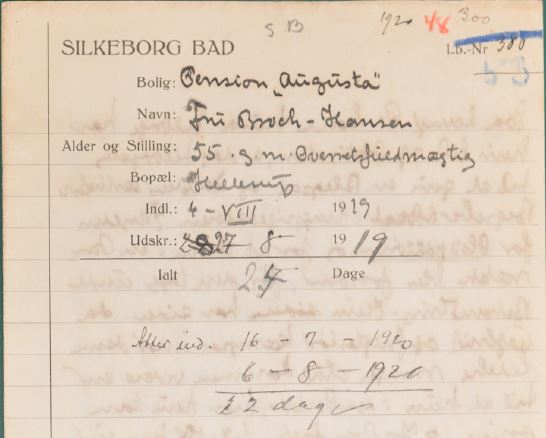 1920 48 300
S.B
SILKEBORG BAD
Lb.-Nr 380
Bolig: Pension „Augusta"
Navn: Fru Broch-Hansen
Alder og Stilling: 55. g.m. Overretsfuldmægtig
Bopæl: Hellerup
Indl.: 4 - VIII 1919
Udskr.: 27 - 8 1919
Ialt 24 Dage
Atter ind. 16 - 7 - 1920
6 - 8 - 1920
22 dage